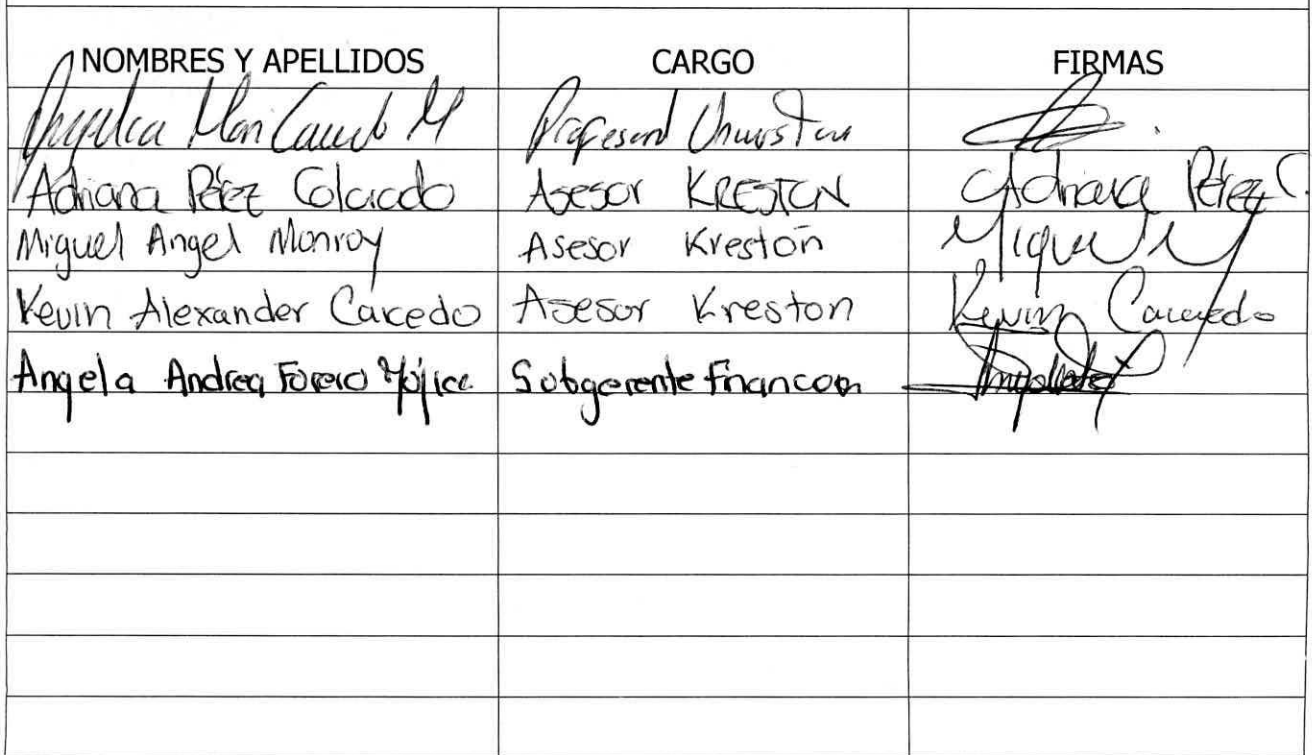 NOMBRES Y APELLIDOS CARGO FIRMAS
Angelica M
Adriana Pérez Colorado Asesor KRESTON Adriana Pérez C
Miguel Angel Monroy Asesor Kreston Miguel M
Kevin Alexander Caicedo Asesor Kreston Kevin Caicedo
Angela Andrea Forero Mojica Subgerente Financiera